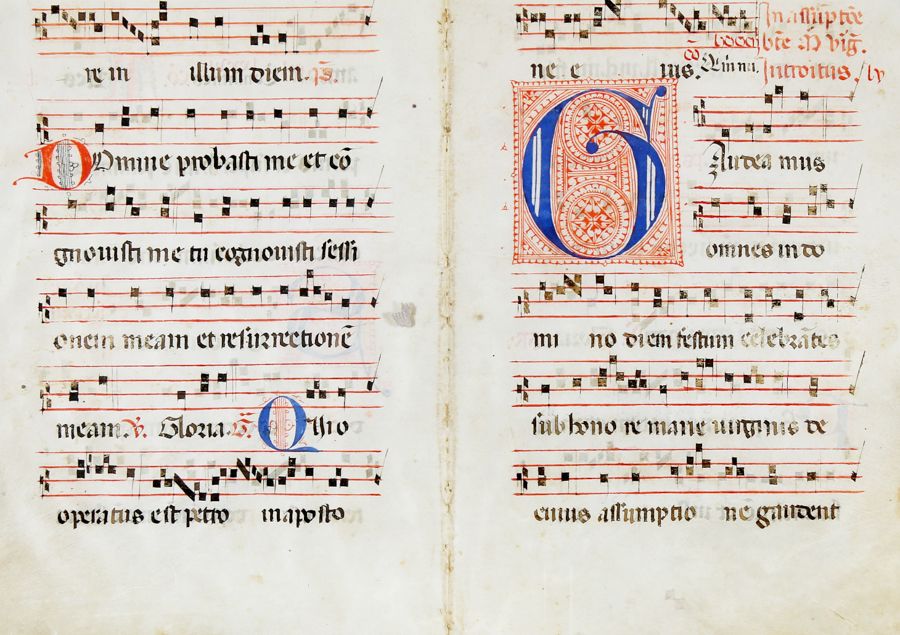 re m illum diem. ps.
Domine probasti me et co
gnouisti me tu cognouisti sessi
onem meam et resurrectionē
meam. V. Gloria. G. Qui o
peratus est petro in aposto
ne e ius. In assūptōe
bt̄e M v̄ig̃.
Introitus
Gaudea mus
omnes in do
mi no diem festum celebrātes
sub hono re marie uirginis de
cuius assumptio ne gaudent